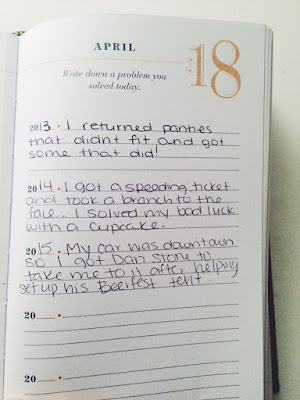 APRIL
18
Write down a problem you
solved today.
2013 • I returned panties
that didnt fit and got
some that did!
2014 • I got a speeding ticket
and took a branch to the
face.. I solved my bad luck
with a cupcake.
2015 • My car was downtown
so I got Dan Stone to
take me to it after helping
set up his Beerfest tent.
20__ •
20__ •